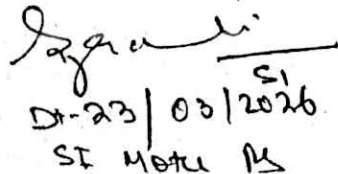 SI
Dt-23/03/2026
SI Motu PS